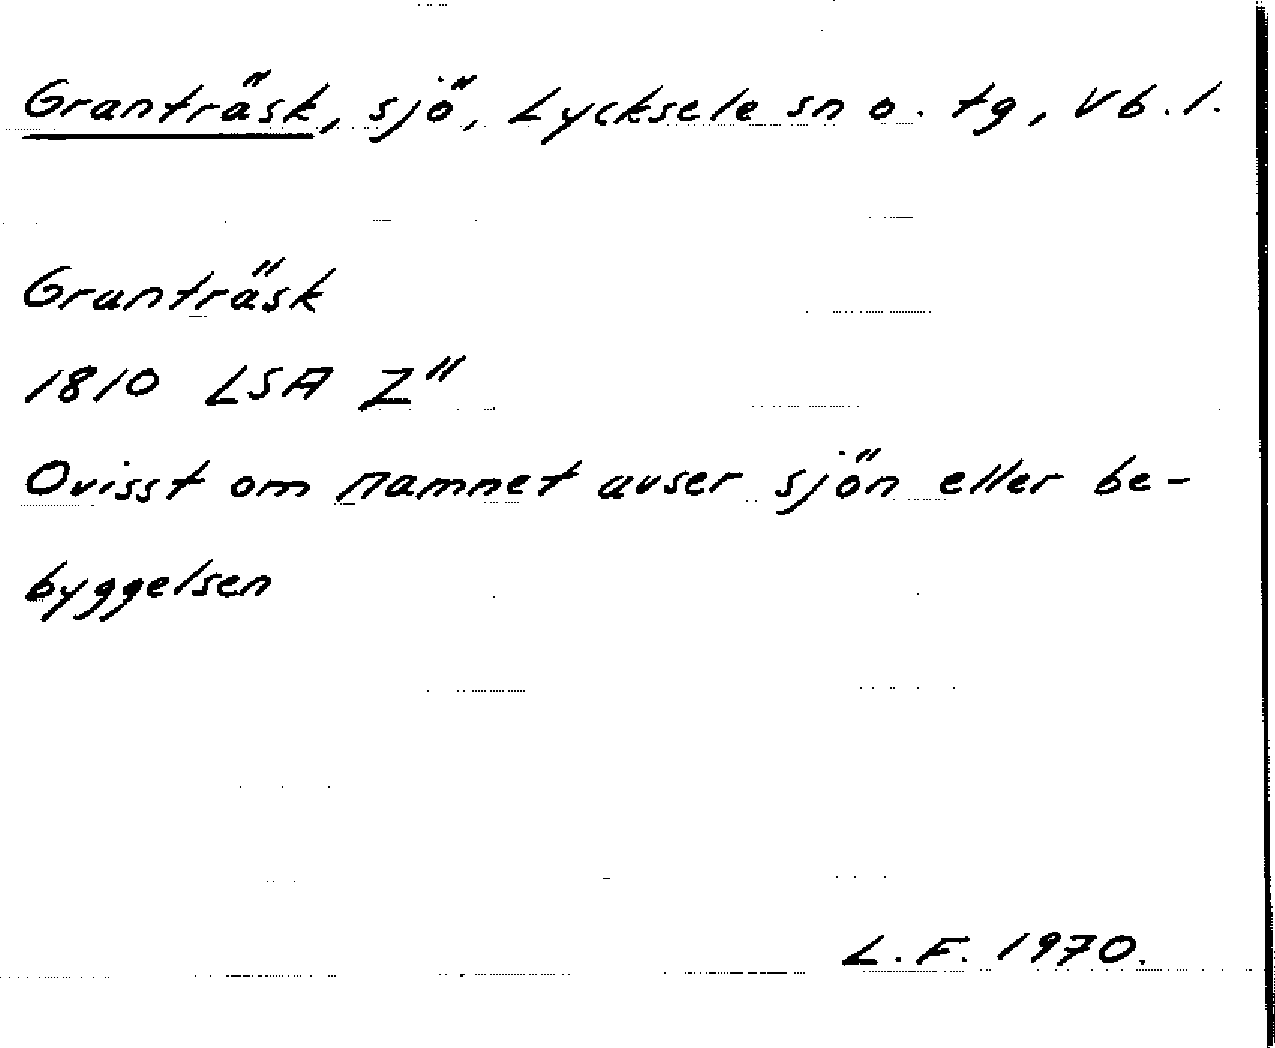 Granträsk, sjö, Lycksele sn o. tg, Vb. l.
Granträsk
1810 LSA Z"
Ovisst om namnet avser sjön eller be-
byggelsen
L. F. 1970.